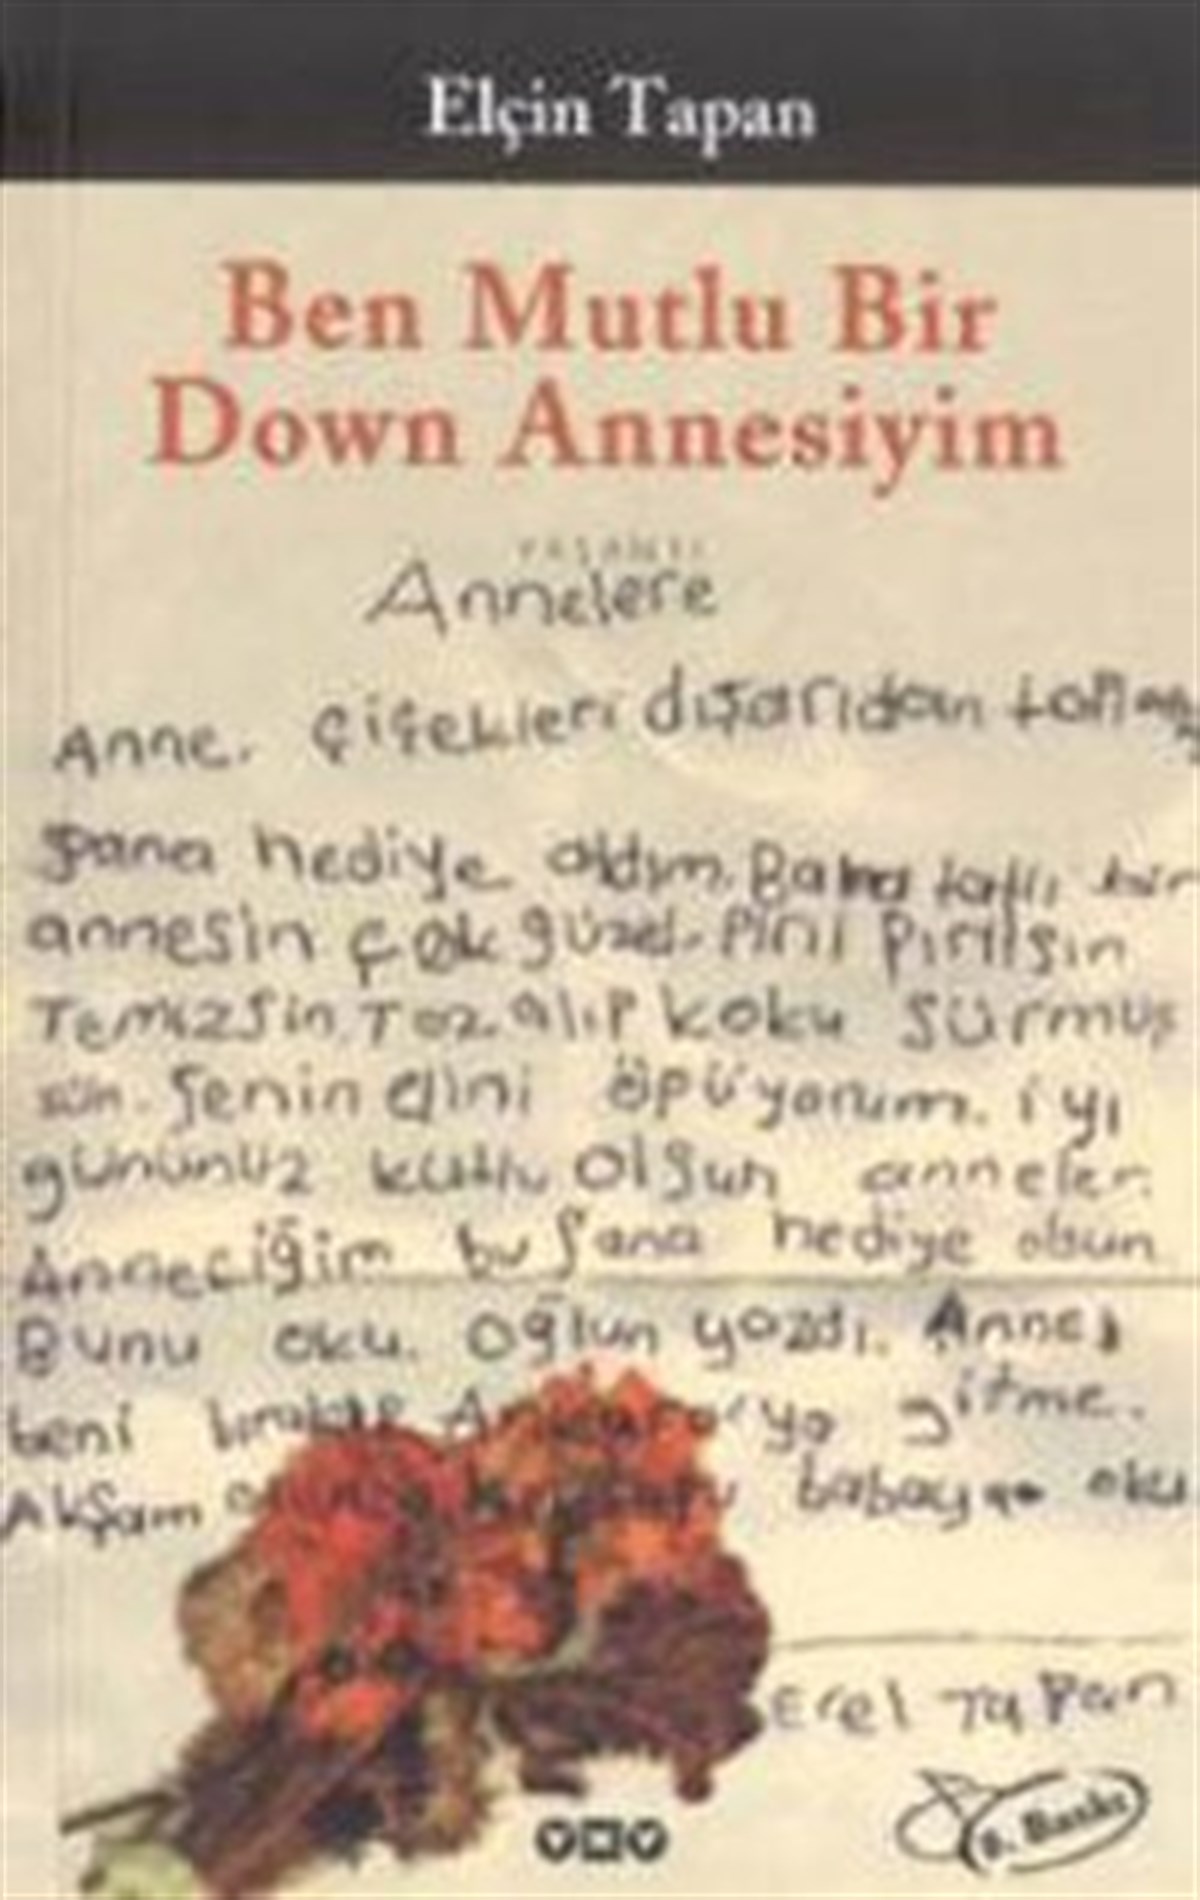 Elçin Tapan
Ben Mutlu Bir
Down Annesiyim
YAŞANTI
Annelere
Anne. Çiçekleri dışarıdan
şana hediye aldım. Bana tatlı bir
annesin çok güzel. Pırıl pırılsın
Temizsin. Toz alıp koku sürmüş
sün. Şenin elini öpüyorum. iyi
gününüz kutlu olsun anneler.
Anneciğim bu şana hediye olsun
Bunu oku. Oğlun yazdı. Anne
beni bırakıp Ankara'ya gitme.
Akşam babaya oku
Erel Tapan
YKY
Baskı